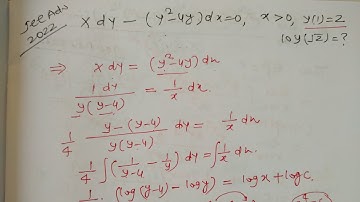 Jee Adv 2022
x dy - (y²-4y) dx = 0, x > 0, y(1) = 2
10 y(√2) = ?
⇒ x dy = (y²-4y) dx
dy / y(y-4) = 1/x dx.
1/4 y-(y-4) / y(y-4) dy = 1/x dx
1/4 ∫ (1/(y-4) - 1/y) dy = ∫ 1/x dx.
1/4. (log(y-4) - logy) = logx + logC.